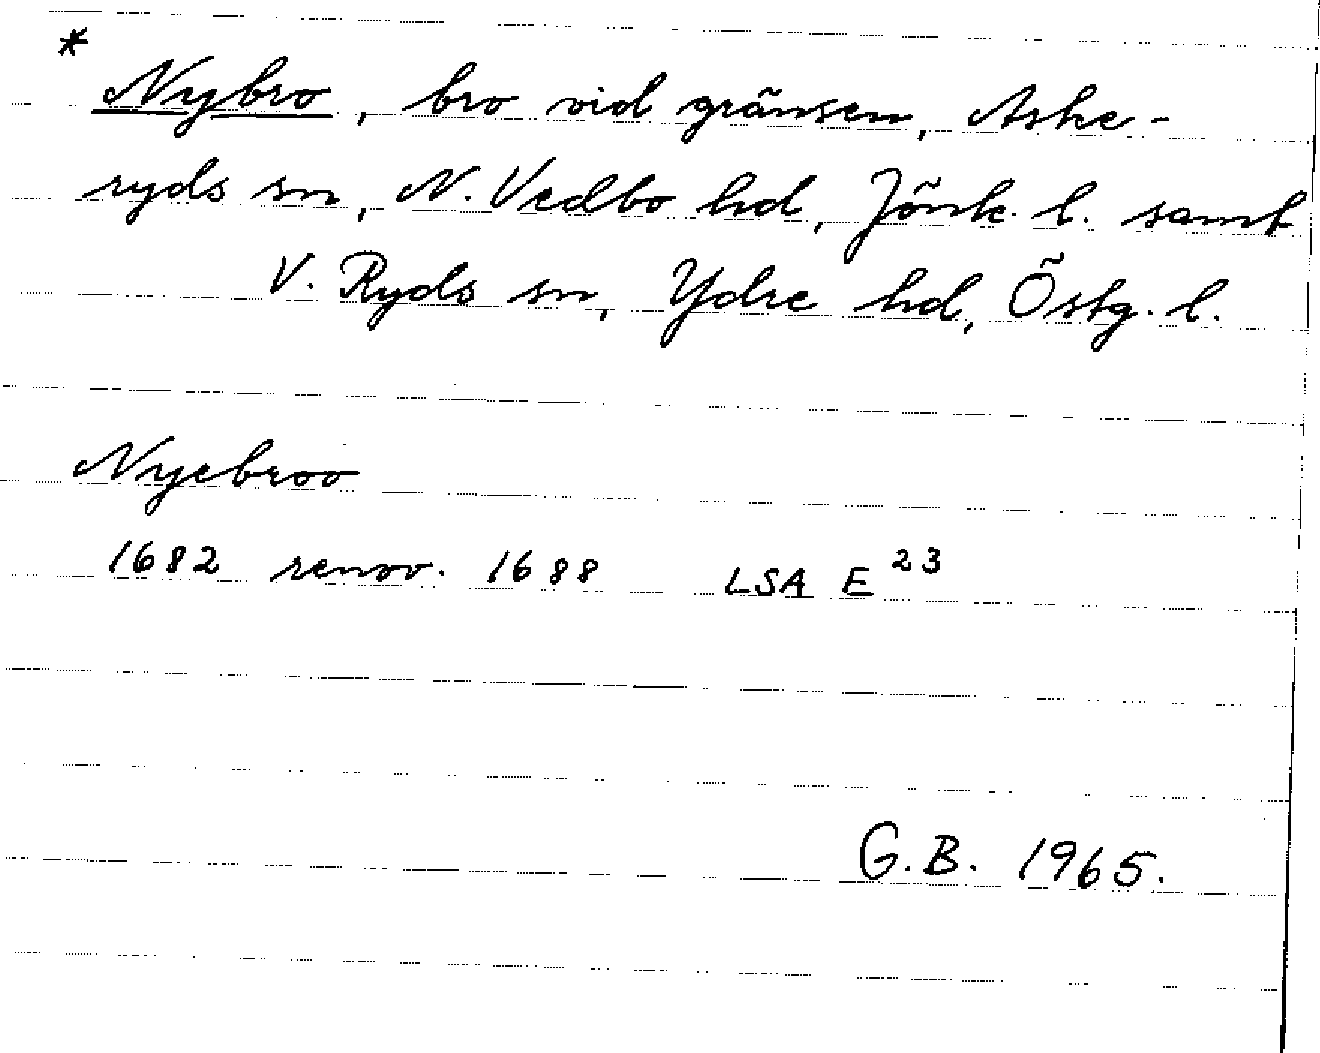 *
Nybro, bro vid gränsen, Aske-
ryds sn, N. Vedbo hd, Jönk. l. samt
V. Ryds sn, Ydre hd, Östg. l.
Nyebroo
1682 renov. 1688 LSA E 23
G.B. 1965.